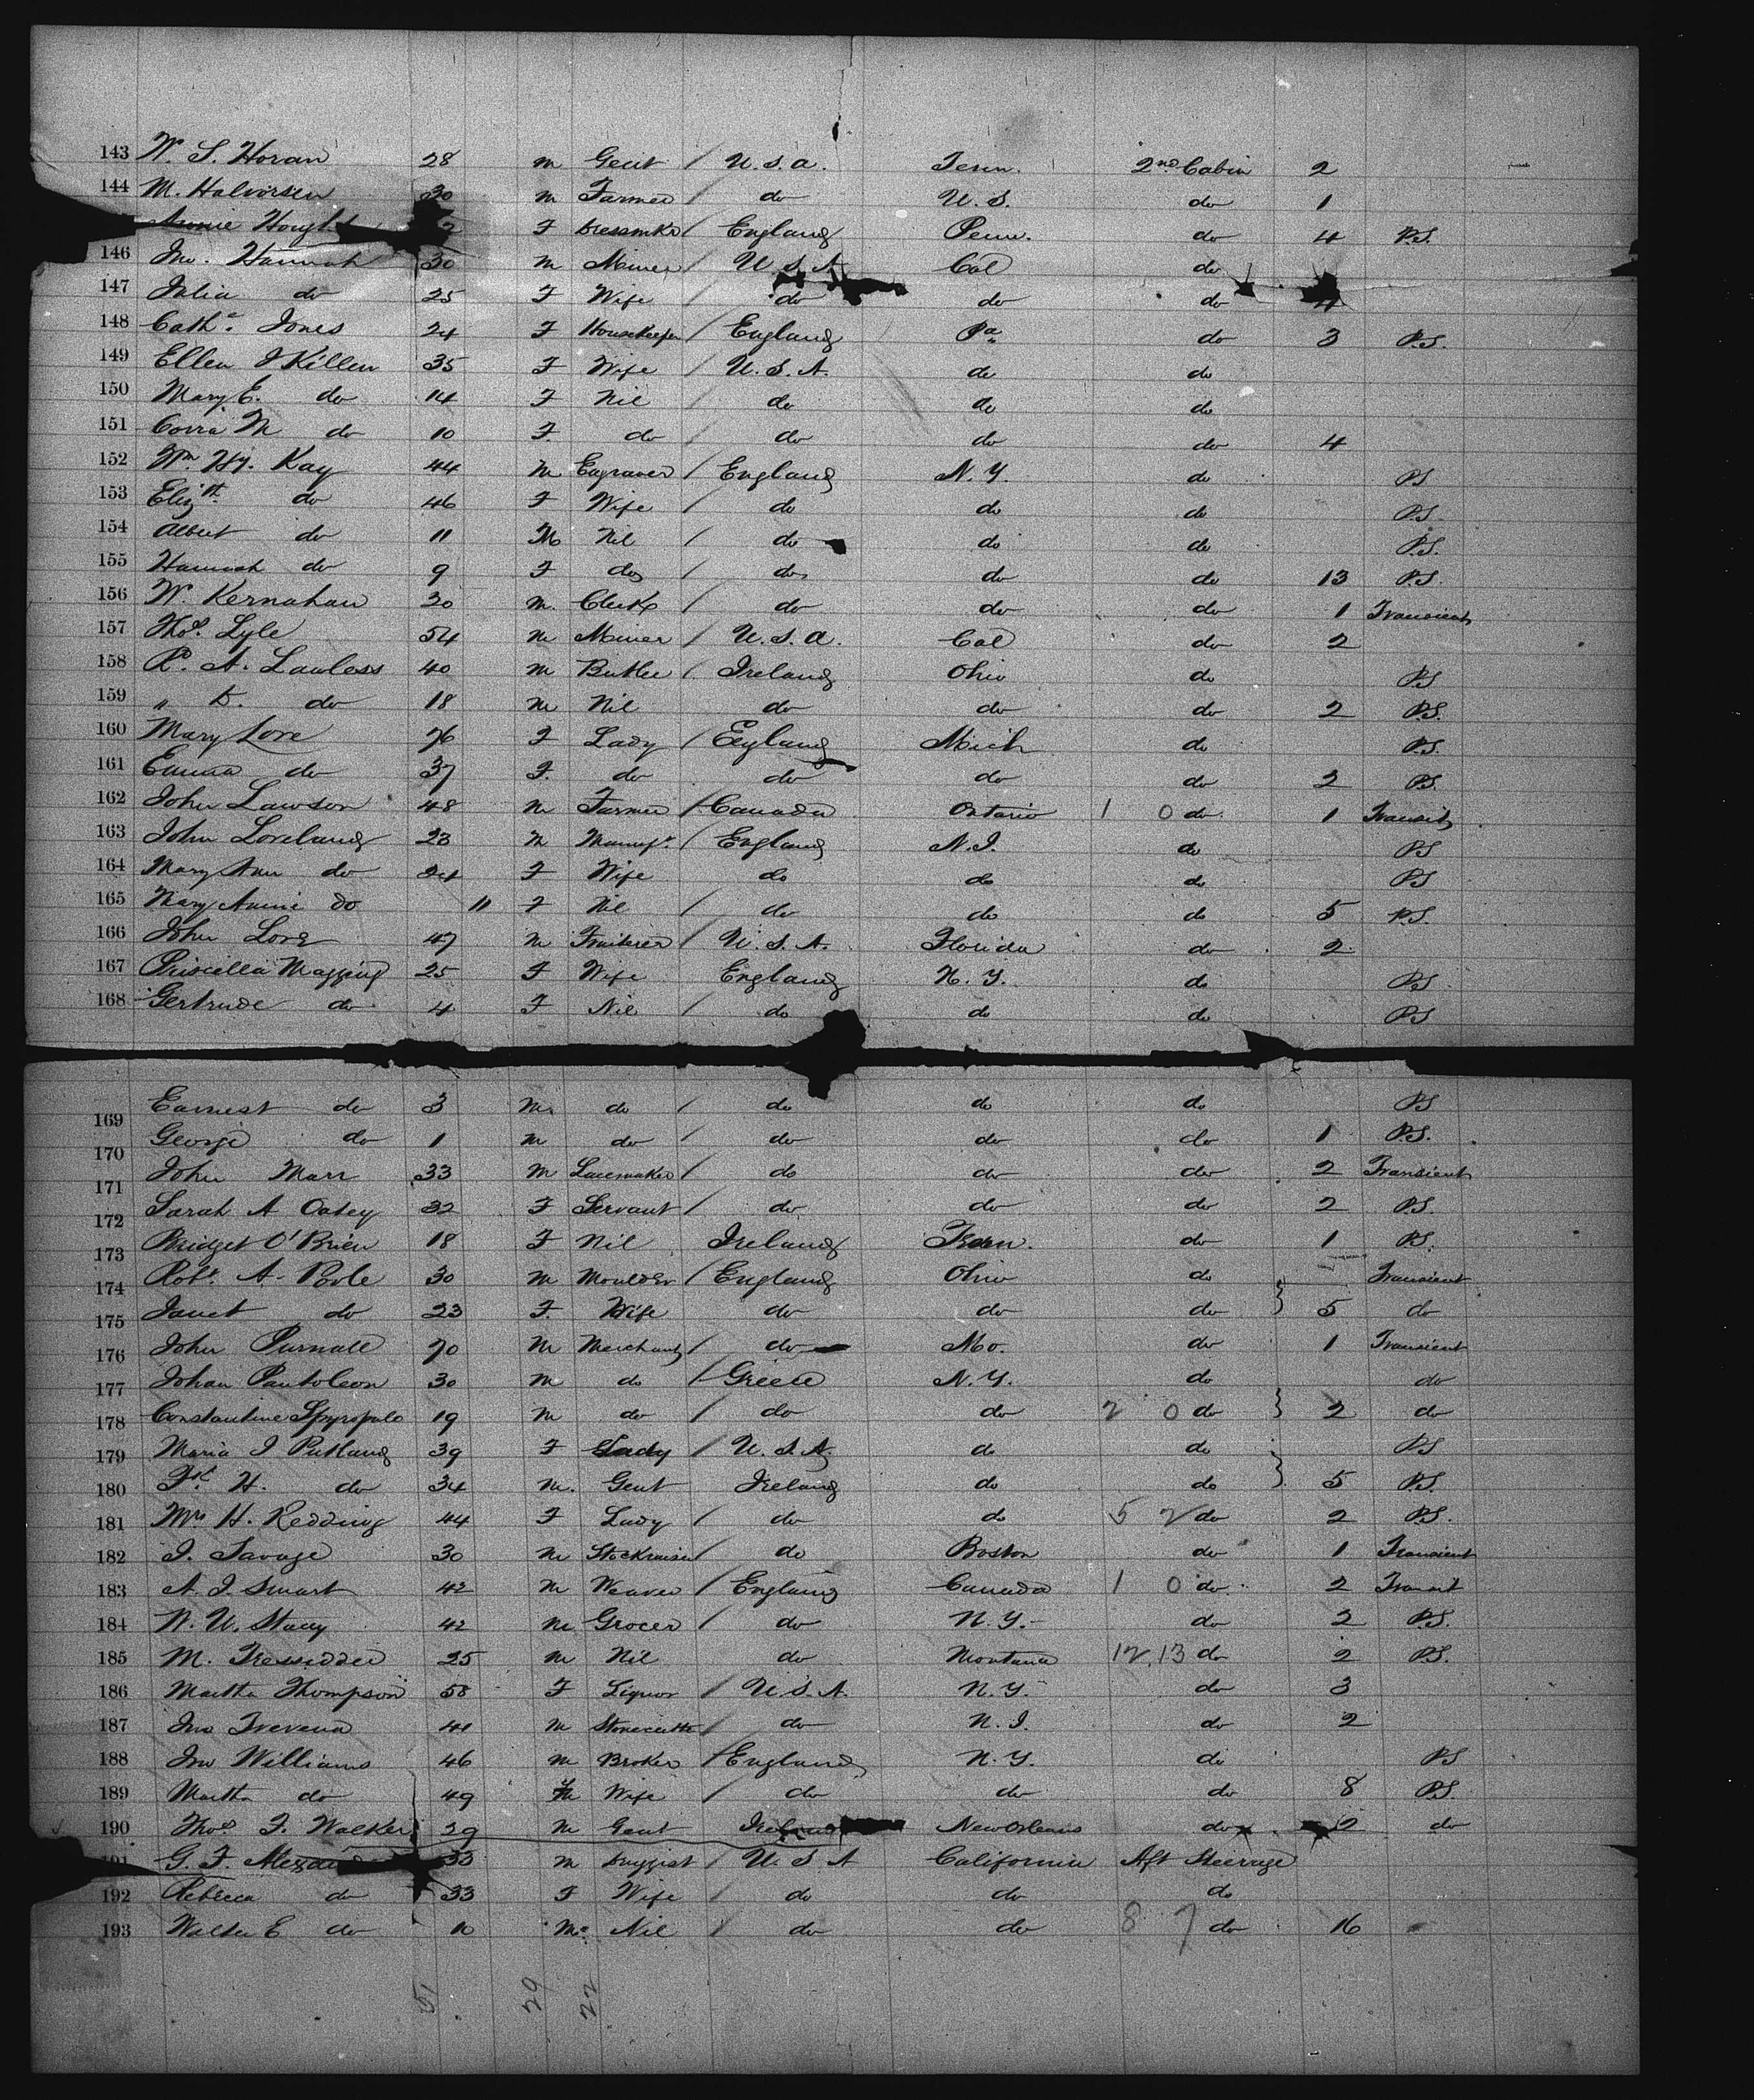 143 W. S. Horan 28 m Gent / U.S.A. Tenn. 2nd Cabin 2
144 M. Halvorsen 30 m Farmer / do U.S. do 1
Annie F Dressmkr / England Penn. do 4 P.S.
146 Jno. Hannah 30 m Miner / U.S.A Cal do
147 Julia do 25 F Wife / do do do 4
148 Cathe. Jones 24 F Housekeeper / England Pa do 3 P.S.
149 Ellen J Killen 35 F Wife / U.S.A. do do
150 Mary E. do 14 F Nil / do do do
151 Corra M do 10 F. do / do do do 4
152 Wm. Hy. Kay 44 m Engraver / England N.Y. do PS
153 Elizth. do 46 F Wife / do do do P.S.
154 Albert do 11 M Nil / do do do P.S.
155 Hannah do 9 F do / do do do 13 P.S.
156 W. Kernahan 30 m. Clerk / do do do 1 Transient
157 Thos. Lyle 54 m Miner / U.S.A. Cal do 2
158 Rd. A. Lawless 40 m Butler /. Ireland Ohio do PS
159 " D. do 18 m Nil do do do 2 P.S.
160 Mary Love 76 F Lady / England Mich do P.S.
161 Emma do 37 F. do do do do 2 P.S.
162 John Lawson 48 m Farmer / Canada Ontario 1 0 do 1 Transit
163 John Loveland 23 m Manufr. / England N.J. do PS
164 Mary Ann do 24 F Wife do do do PS
165 Mary Annie do 11 F Nil / do do do 5 P.S.
166 John Long 47 m Fruiterer / U.S.A. Florida do 2
167 Priscilla 25 F Wife England N.Y. do PS
168 Gertrude do 4 F Nil / do do do PS
169 Earnest do 3 m. do / do do do PS
170 George do 1 m do / do do do 1 P.S.
171 John Marr 33 m Lacemaker / do do do 2 Transient
172 Sarah A Oatey 32 F Servant / do do do 2 P.S.
173 Bridget O'Brien 18 F Nil Ireland do 1 P.S.
174 Robt. A. Poole 30 m Moulder / England Ohio do Transient
175 Janet do 23 F. Wife do do do 5 do
176 John Purnall 70 m Merchant / do Mo. do 1 Transient
177 Johan Pantoleon 30 m do / Greece N.Y. do do
178 Constantine Spyropulo 19 m do / do do 2 0 do 2 do
179 Maria J Putland 39 F Lady / U.S.A. do do PS
180 H. do 34 m. Gent Ireland do do 5 P.S.
181 Mrs H. Redding 44 F Lady / do do 5 2 do 2 P.S.
182 J. Savage 30 m Stockraiser / do Boston do 1 Transient
183 A. J. Smart 42 m Weaver / England Canada 1 0 do 2 Transit
184 W. U. Stacy 42 m Grocer / do N.Y. do 2 P.S.
185 M. Tressidder 25 m Nil do Montana 12 13 do 2 P.S.
186 Martha Thompson 58 F Liquor / U.S.A. N.Y. do 3
187 Jno Trevena 41 m Stonecutter / do N.J. do 2
188 Jno Williams 46 m Broker / England N.Y. do PS
189 Martha do 49 F Wife / do do do 8 P.S.
190 Thos J. Walker 29 m Gent Ireland New Orleans do 2 do
191 G. F. 33 m Druggist / U.S.A California Aft Steerage
192 Rebecca do 33 F Wife / do do do
193 Walter E do 10 m. Nil / do do 8 7 do 16
51 29 22